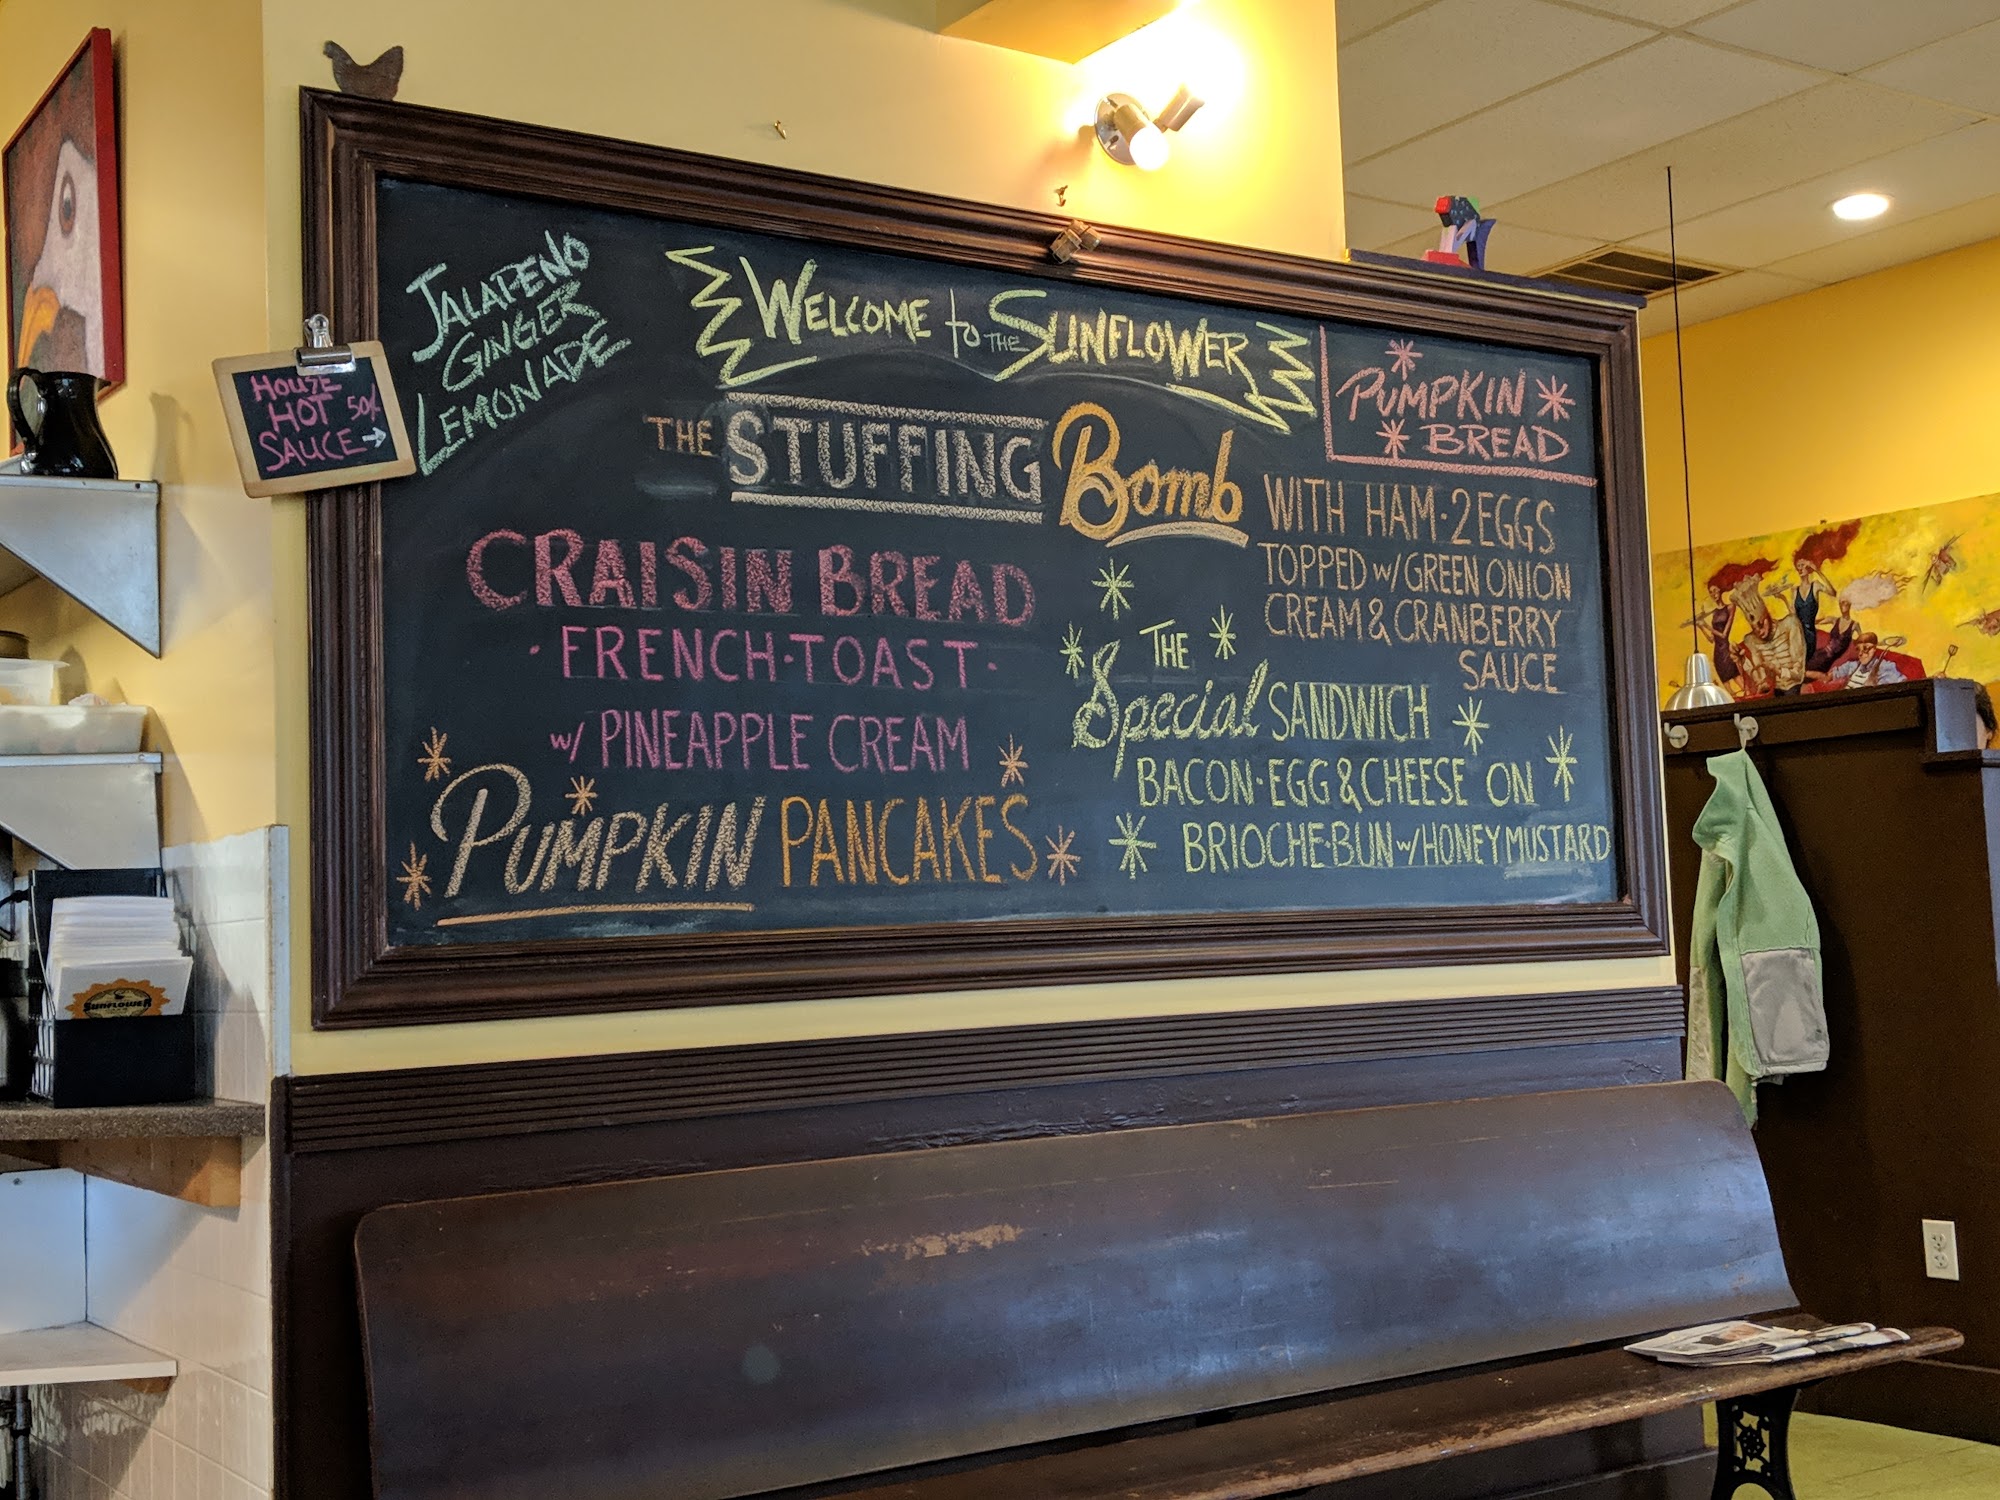 JALAPENO
GINGER
LEMONADE
WELCOME to THE SUNFLOWER
PUMPKIN
BREAD
HOUSE
HOT 50¢
SAUCE →
THE STUFFING Bomb
WITH HAM · 2 EGGS
TOPPED w/ GREEN ONION
CREAM & CRANBERRY
SAUCE
CRAISIN BREAD
· FRENCH · TOAST ·
w/ PINEAPPLE CREAM
PUMPKIN PANCAKES
THE
Special SANDWICH
BACON · EGG & CHEESE ON
BRIOCHE · BUN w/ HONEY MUSTARD
SUNFLOWER